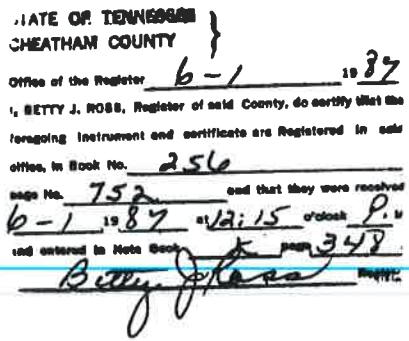 STATE OF TENNESSEE
CHEATHAM COUNTY
Office of the Register 6-1 1987
I, BETTY J. ROSS, Register of said County, do certify that the
foregoing instrument and certificate are Registered in said
office, in Book No. 256
page No. 752 and that they were received
6-1 1987 at 12:15 o'clock P. M
and entered in Note Book page 348
Betty J Ross Register